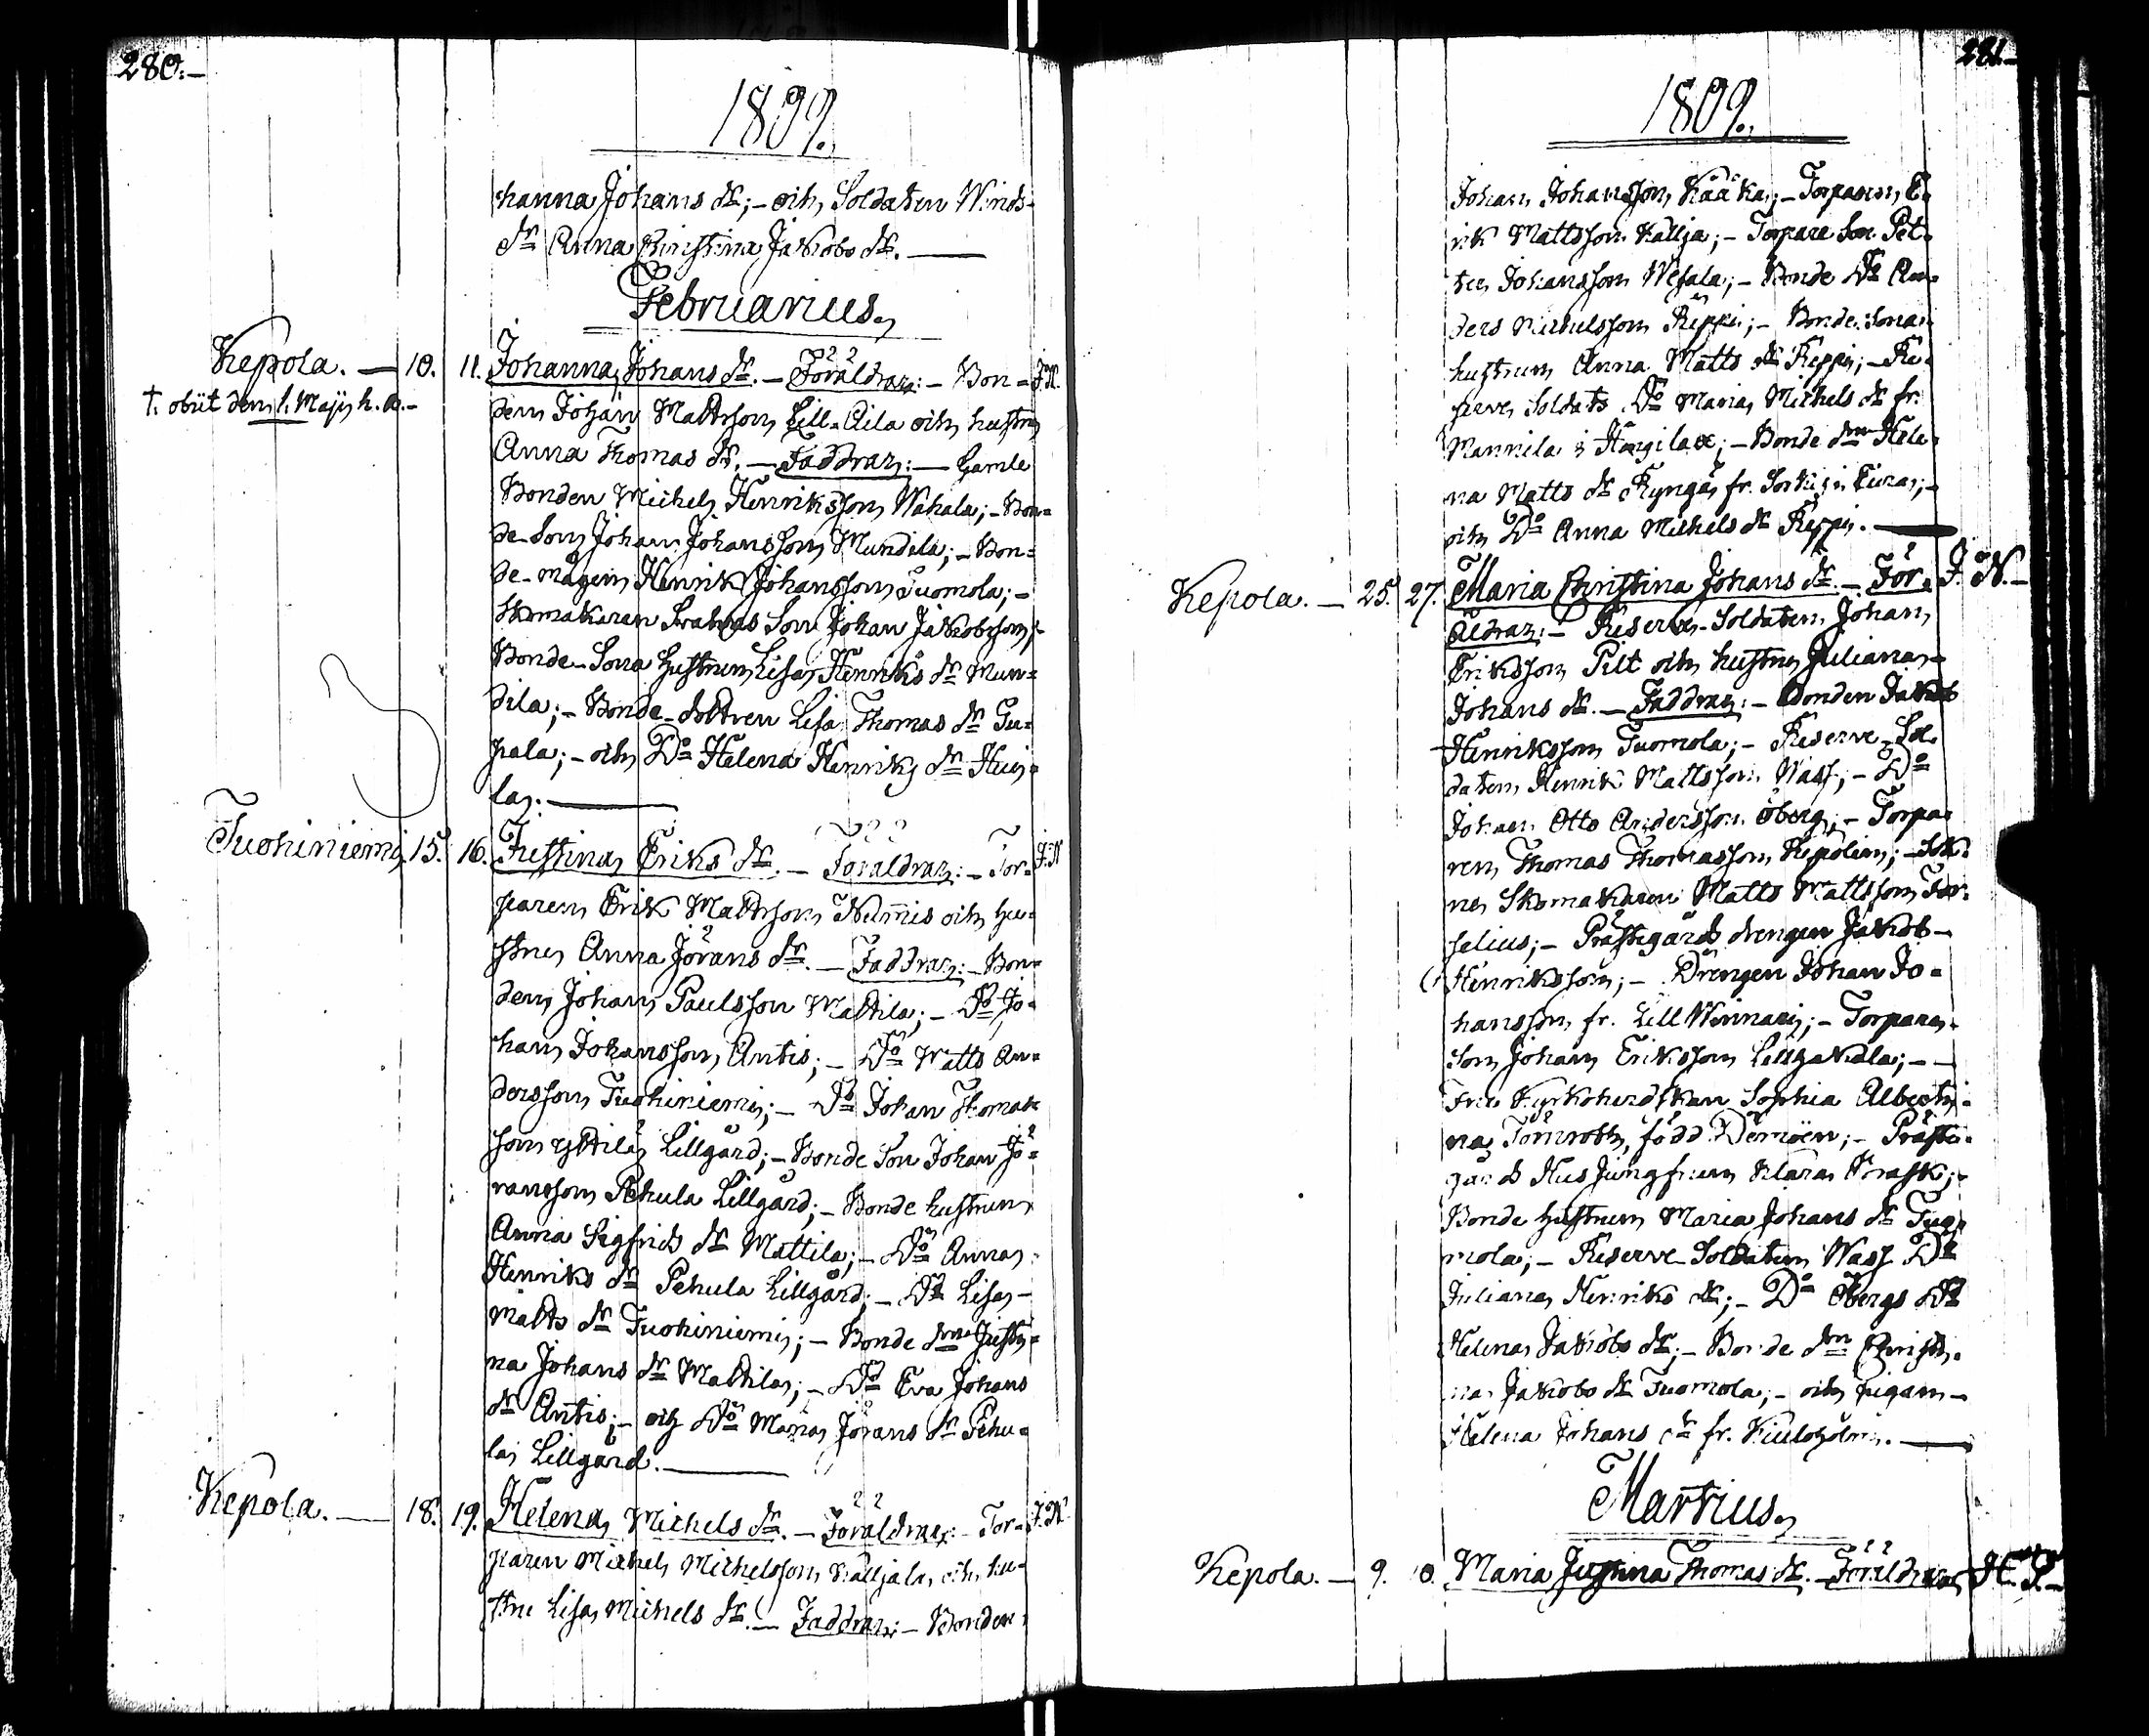 280.
1809.
hanna Johans dr; - och Soldaten Winds
dr Anna Christina Jakobs dr.
Februarius.
Kepola. - 10. 11. Johanna Johans dr. - Föräldrar: - Bon= J.N.
† obiit den 1. Maji h. a. -
den Johan Mattsson Lill-Äila och hustru
Anna Thomas dr. - Faddrar: - Gamle
Bonden Michel Henriksson Wahala; - Bon=
de-Son Johan Johansson Mundila; - Bon=
de-mågen Henrik Johansson Tuomola; -
Skomakaren Son Johan Jakobsson; -
Bonde-Sona hustrun Lisa Henriks dr Mun=
dila; - Bonde-dottren Lisa Thomas dr
pala; - och Do Helena Henriks dr
la.
Tuohiniemi 15. 16. Justina Eriks dr. - Föräldrar: - Tor= J.N
paren Erik Mattsson Nummis och hu=
stru Anna Jörans dr. - Faddrar: - Bon=
den Johan Paulsson Mattila; - Do Jo=
han Johansson Antis; - Do Matts An=
dersson Tuohiniemi; - Do Johan Thomas
son Lillgård; - Bonde Son Johan Jö=
ransson Pehula Lillgård; - Bonde hustrun
Anna Sigfrids dr Mattila; - Do Anna
Henriks dr Pehula Lillgård; - Do Lisa -
Matts dr Tuohiniemi; - Bonde drn Justi=
na Johans dr Mattila; - Do Eva Johans
dr Antis; - och Do Maria Jörans dr Pehu=
la Lillgård.
Kepola. - 18. 19. Helena Michels dr. - Föräldrar: - Tor= J.N
paren Michel Michelsson Källjala och hu=
stru Lisa Michels dr. - Faddrar: - Bonden
281.
1809.
Johan Johansson Kääka; - Torparen E=
rik Mattsson Källja; - Torpare Son Pet=
ter Johansson Wesala; - Bonde Do An=
ders Michelsson Reppi; - Bonde Sona
hustrun Anna Matts dr Reppi; - Re=
serve Soldats Do Maria Michels dr fr.
Mannila i Hongilax; - Bonde drn Hele=
na Matts dr Ryngä fr. Sorkis i Eura; -
och Do Anna Michels dr Reppi.
Kepola. - 25. 27. Maria Christina Johans dr. - För= J. N. -
äldrar: - Reserve-Soldaten Johan
Eriksson Pilt och hustru Juliana
Johans dr. - Faddrar: - Bonden Jakob
Henriksson Tuomola; - Reserve-Sol=
daten Henrik Mattsson Wass; - Do
Johan Otto Andersson Öberg; - Torpa=
ren Thomas Thomasson Kepolin; - Sok=
ne Skomakaren Matts Mattsson For=
selius; - Prästegårds drengen Jakob
Henriksson; - Drengen Johan Jo=
hansson fr. Lill Winnari; - Torpare
Son Johan Eriksson; -
Fru Kyrkoherdskan Sophia Alberti=
na Törnroth, född Demoen; - Präste=
gårds Hus Jungfrun Klara Krask; -
Bonde hustrun Maria Johans dr Tuo=
mola; - Reserve-Soldaten Wass Do
Juliana Henriks dr; - Do Öbergs Do
Helena Jakobs dr; - Bonde drn Christi=
na Jakobs dr Tuomola; - och Pigan -
Helena Johans dr fr. Kiuloholm.
Martius.
Kepola. - 9. 10. Maria Justina Thomas dr. - Föräldrar H. P. -